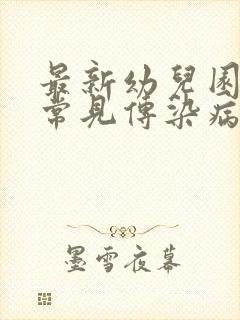 最新幼兒園
常見傳染病
墨雪夜幕